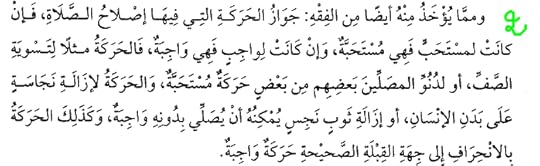 وممَّا يُؤْخَذُ مِنْهُ أيضًا مِن الفِقْهِ: جَوَازُ الحَرَكَةِ الَّتِي فِيهَا إصْلَاحُ الصَّلَاةِ، فَإِنْ
كانَتْ لمسْتَحَبٍّ فَهِي مُسْتَحَبَّةٌ، وَإنْ كَانَتْ لِواجِبٍ فَهِي وَاجِبَةٌ، فَالحَرَكَةُ مثلًا لِتَسْوِيَةِ
الصَّفِّ، أو لدُنُوِّ المصَلِّينَ بَعضِهِم مِن بَعْضٍ حَرَكَةٌ مُسْتَحَبَّةٌ، وَالحَرَكَةُ لإزَالَةِ نَجَاسَةٍ
عَلَى بَدَنِ الإنْسَانِ، أو إزَالَةِ ثَوبٍ نَجِسٍ يُمْكِنُهُ أنْ يُصَلِّي بِدُونِهِ وَاجِبَةٌ، وكَذَلِكَ الحَرَكَةُ
بِالانْحِرَافِ إلى جِهَةِ القِبْلَةِ الصَّحِيحَةِ حَرَكَةٌ وَاجِبَةٌ.